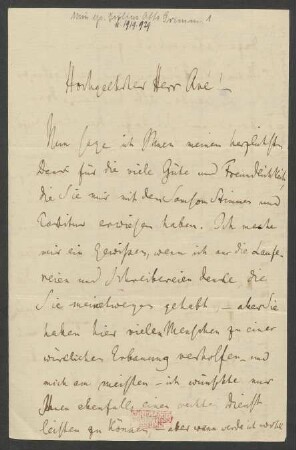 Hochgeehrter Herr Avé! –
Nun sage ich Ihnen meinen herzlichsten
Dank für die viele Güte und Freundlichkeit,
die Sie mir mit den Samson Stimmen und
Partitur erwiesen haben. Ich mache
mir ein Gewissen, wenn ich an die Laufe-
reien und Schreibereien denke, die
Sie meinetwegen gehabt, – aber Sie
haben hier vielen Menschen zu einer
wirklichen Erbauung verholfen – und
mich am meisten – ich wünschte nur
Ihnen ebenfalls einen rechten Dienst
leisten zu können, – aber wann werde ich wohl